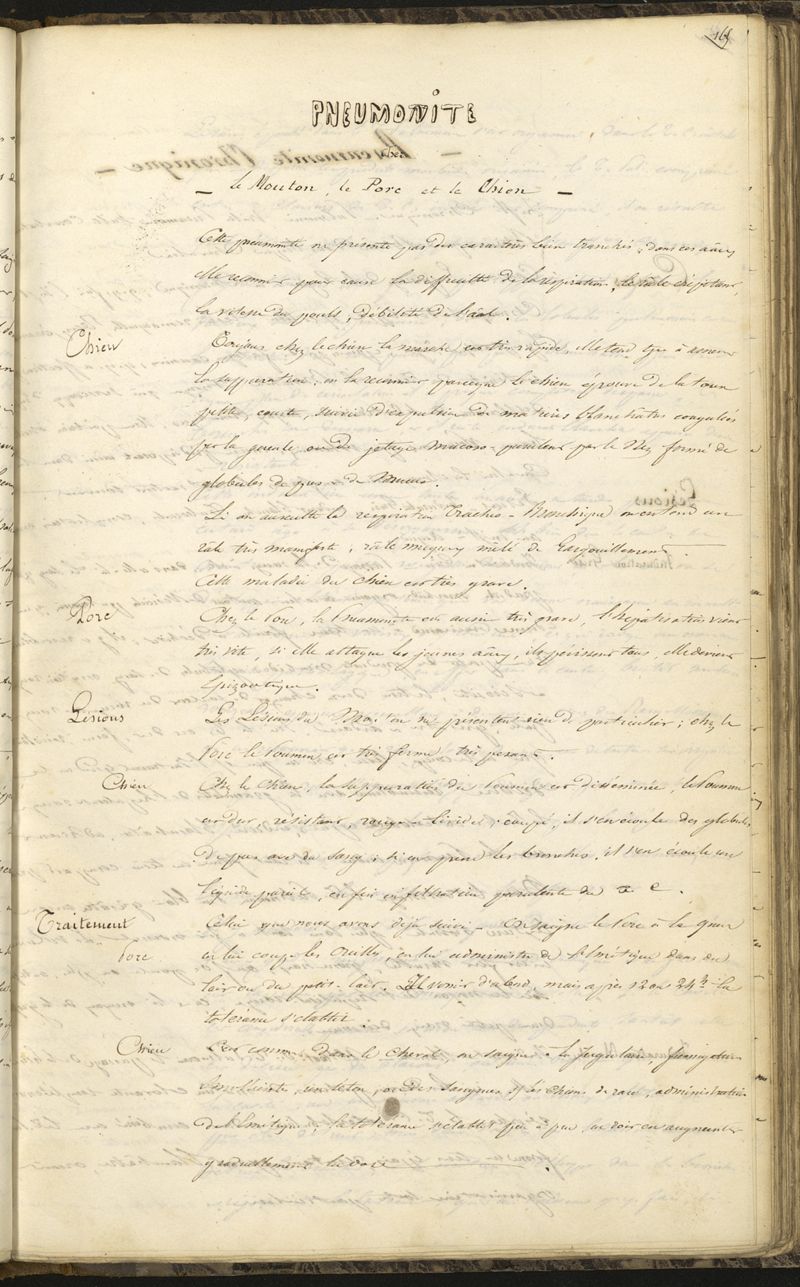 165
PNEUMONITE
chez
— le Mouton, le Porc et le Chien —
Cette pneumonite ne présente pas des caractères bien tranchés, dans ces
elle reconnait pour cause la difficulté de la respiration, le râle crépitant,
la vitesse du pouls, débilité de l'
Chien
chez le chien la marche est très rapide, elle tend à
la suppuration; on la reconnait parceque le chien éprouve de la toux
petite, courte, suivie d'expulsion de matières blanchatres
par la gueule, ou de jetage mucoso-purulent par le Nez formé de
globules de pus et de Mucus.
Si on ausculte la respiration Trachéo-Bronchique on entend un
râle très manifeste, râle muqueux mêlé de Gargouillement.
Cette maladie du chien est très grave.
Porc
Chez le Porc, la Pneumonite est aussi très grave, l'hépatisation vient
très vite, si elle attaque les jeunes, ils périssent tous, elle devient
Epizootique.
Lésions
Les Lésions du Mouton ne présentent rien de particulier; chez le
Porc le Poumon est très ferme très pesant.
Chien
Chez le Chien, la suppuration du Poumon est disséminée, le Poumon
est dur, résistant, rouge livide, coupé, il s'en écoule des globules
de pus avec du sang; si on presse les bronches, il s'en écoule un
liquide purulent, enfin infiltration purulente du
Traitement
Celui que nous avons déjà suivi. On saigne le Porc à la queue
Porc
on lui coupe les Oreilles, on lui administre de l'Emétique dans du
lait ou du petit-lait. Il vomit d'abord, mais après 12 ou 24 h. la
tolérance s'établit.
Chien
C'est comme dans le cheval, on saigne à la Jugulaire, fumigation
émolliente, un séton, ou des sangsues si les chiens de race, administration
de l'Emétique, la tolérance s'établit peu à peu, on doit en augmenter
graduellement la dose